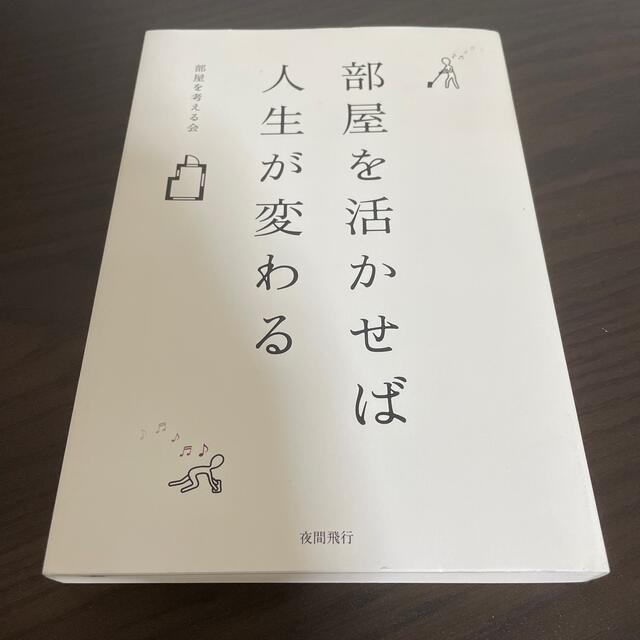 部屋を活かせば
人生が変わる
部屋を考える会
夜間飛行